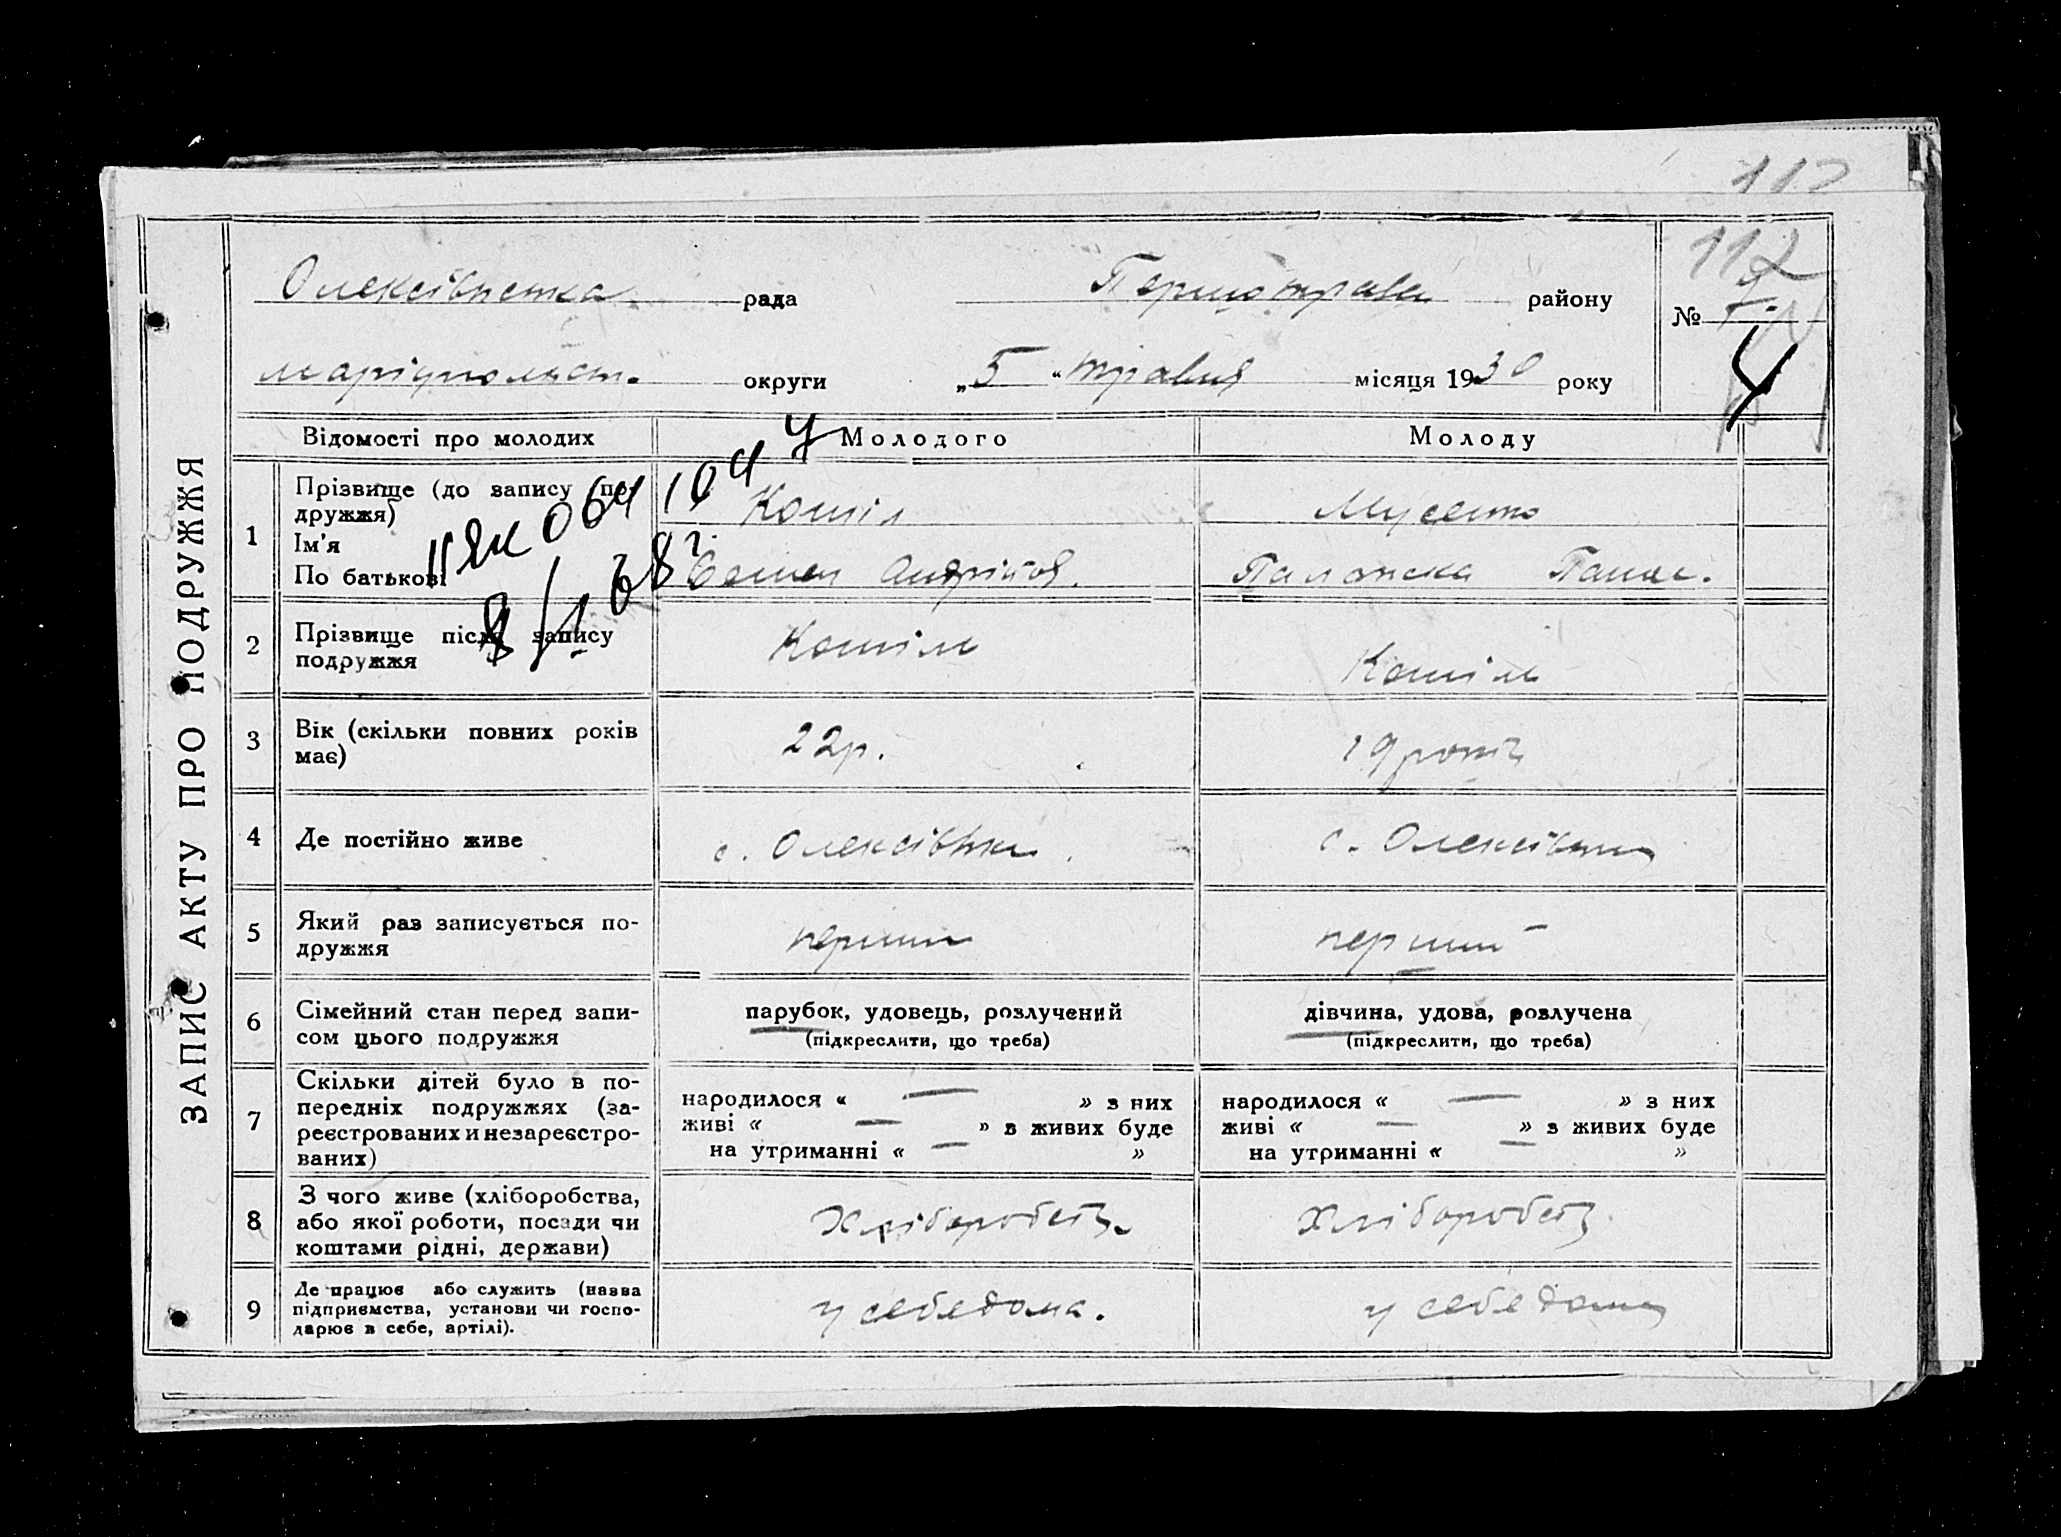 112
ЗАПИС АКТУ ПРО ПОДРУЖЖЯ
Олексівистка рада Першотравн району
112
№ 4.
4
маріупольст. округи „5“ травня місяця 1930 року
Відомості про молодих Молодого Молоду
1 Прізвище (до запису по-
дружжя)
Ім'я
По батькові
Мусенко
Семен Андріков. Палажка Панас.
2 Прізвище після запису
подружжя
3 Вік (скільки повних років
має)
22р. 19 років
4 Де постійно живе
с. Олексівки. с. Олексівки
5 Який раз записується по-
дружжя
перший перший
6 Сімейний стан перед запи-
сом цього подружжя
парубок, удовець, розлучений
(підкреслити, що треба)
дівчина, удова, розлучена
(підкреслити, що треба)
7 Скільки дітей було в по-
передніх подружжях (за-
реєстрованих и незареєстро-
ваних)
народилося « — » з них
живі « — » з живих буде
на утриманні « — »
народилося « — » з них
живі « — » з живих буде
на утриманні « — »
8 З чого живе (хліборобства,
або якої роботи, посади чи
коштами рідні, держави)
Хліборобств. Хліборобств.
9 Де працює або служить (назва
підприємства, установи чи госпо-
дарює в себе, артілі).
у себе дома. у себе дома